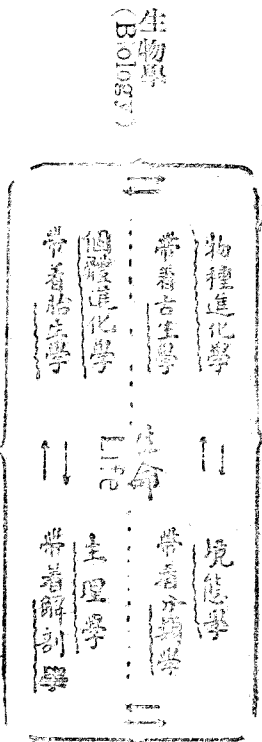 生物學
(Biology)
物種進化學
帶着古生學
個體進化學
帶着胎生學
生命
Life
境態學
帶着分類學
生理學
帶着解剖學